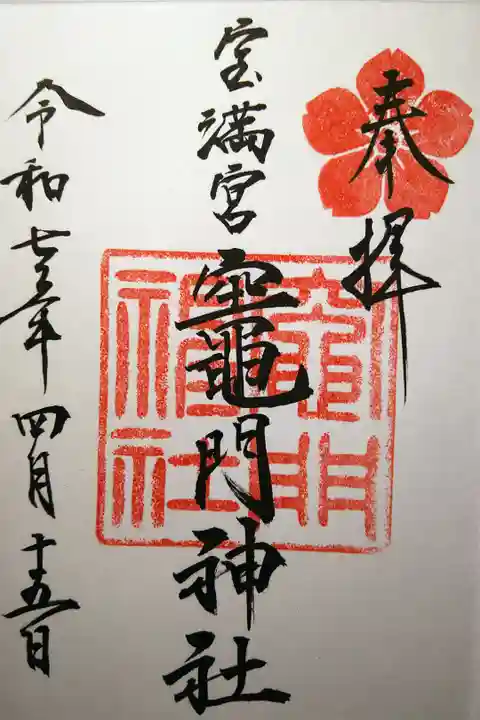 奉拝
宝満宮 竈門神社
竈門神社
令和七年四月十五日